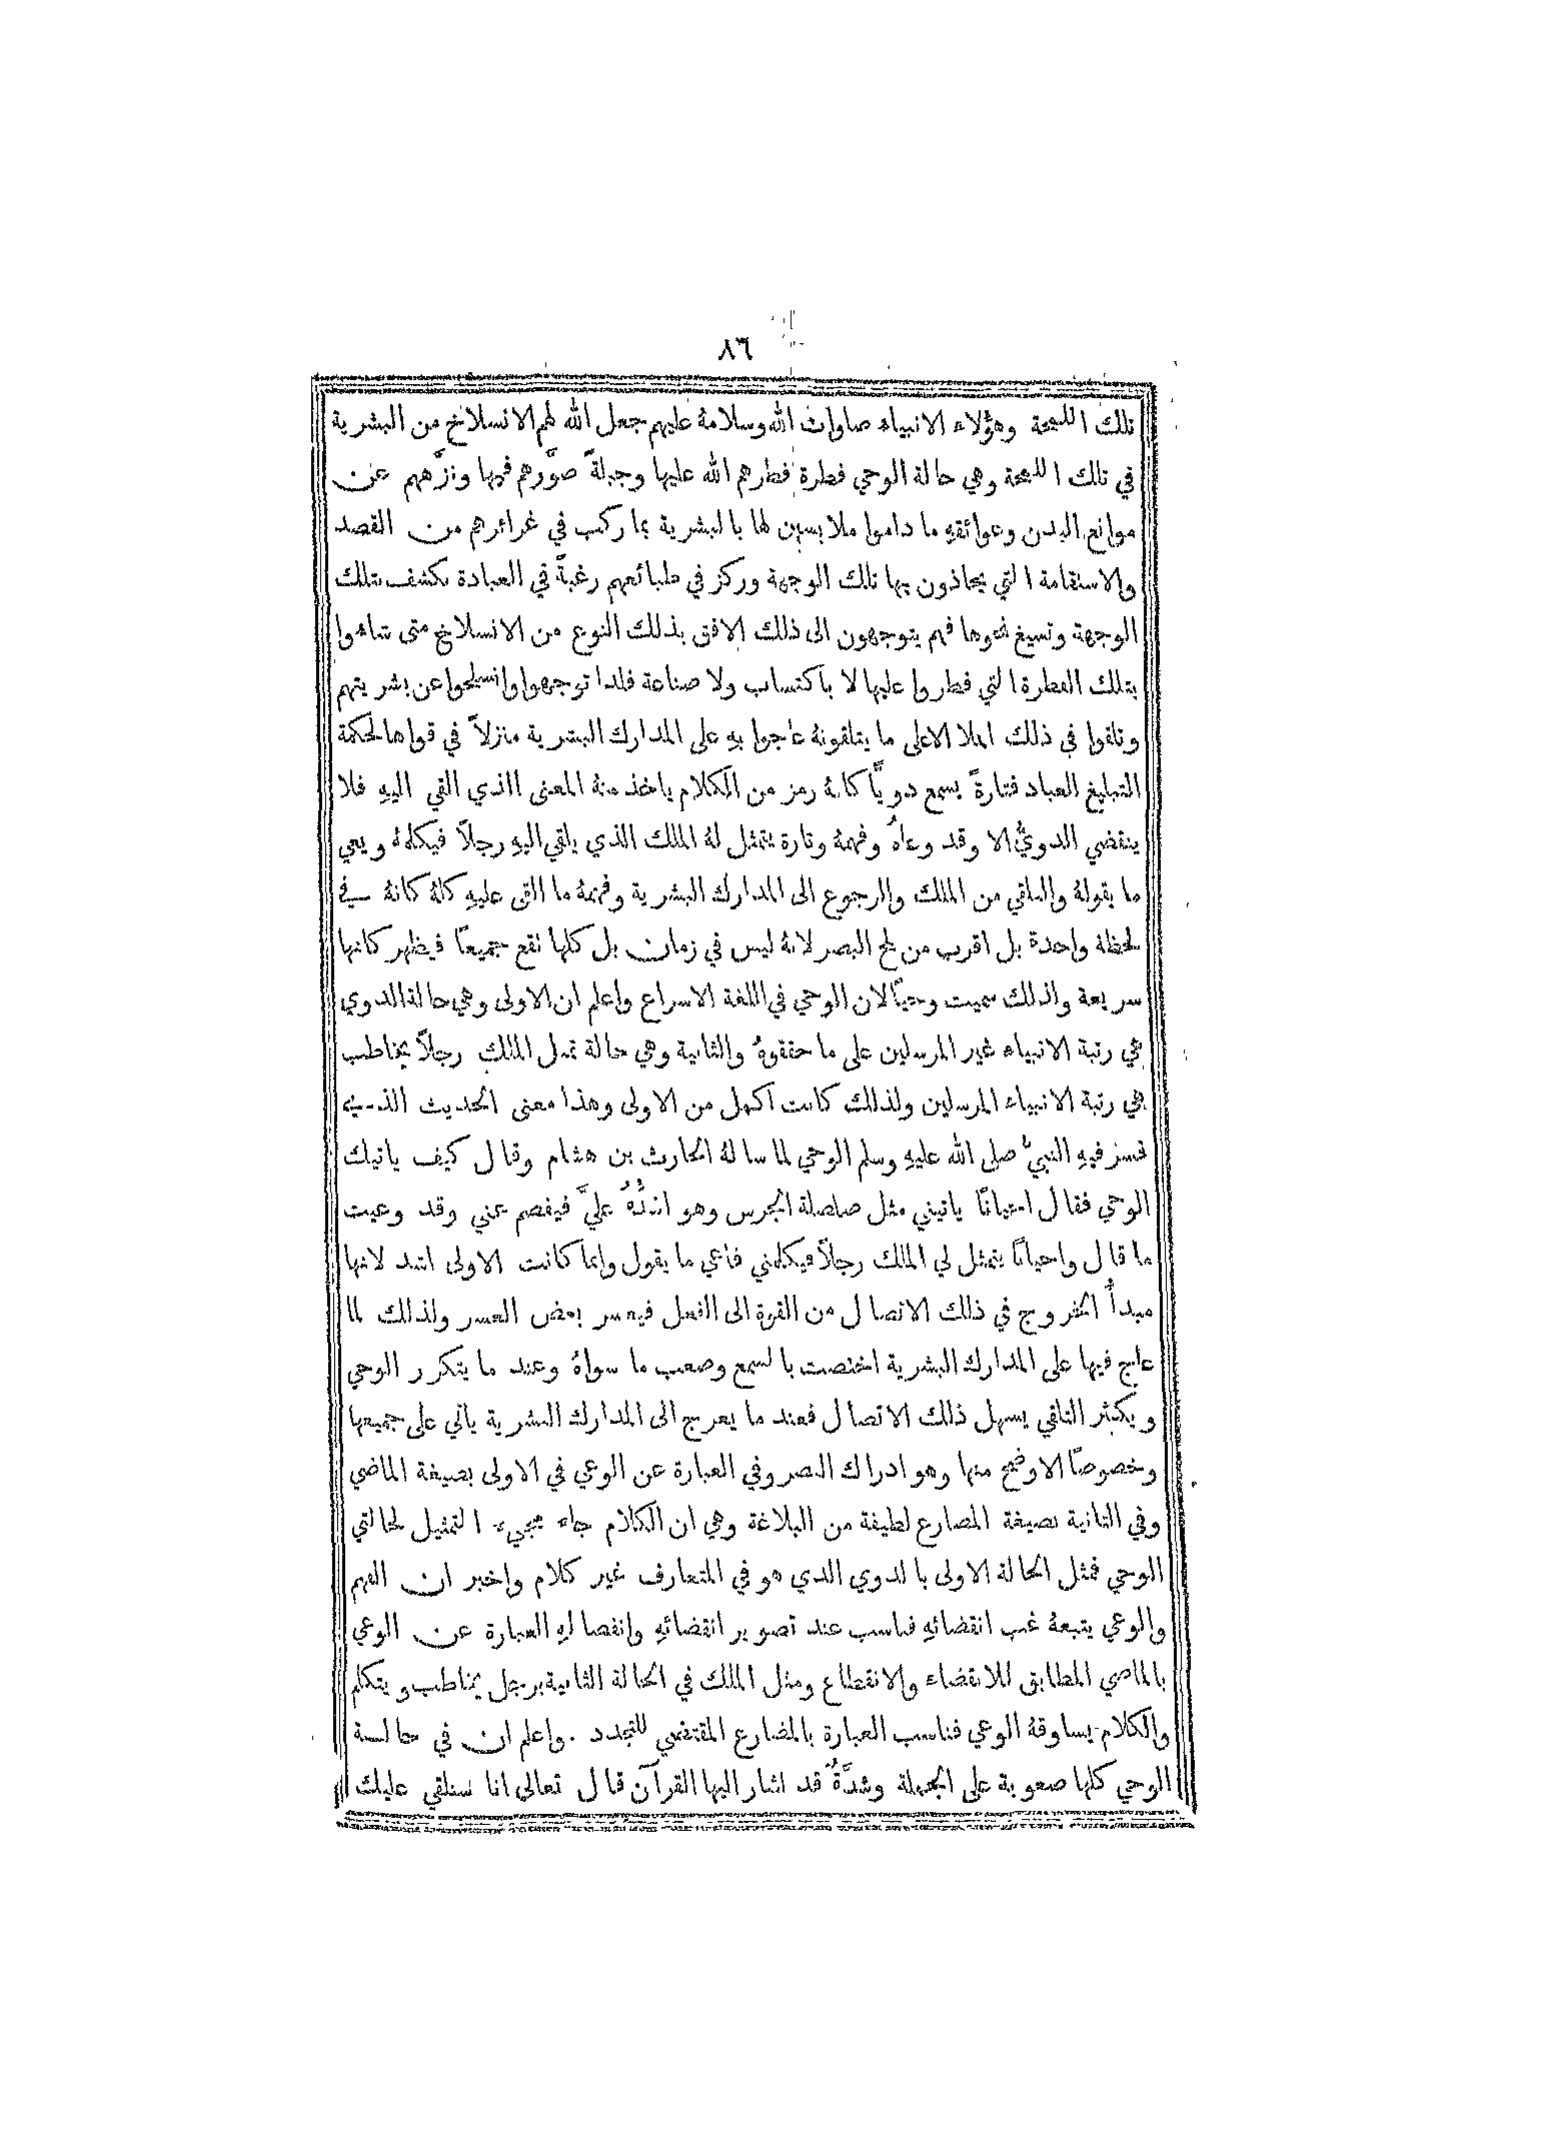 ٨٦
تلك اللمحة وهؤلاء الانبياء صلوات الله وسلامهُ عليهم جعل الله لهم الانسلاخ من البشرية
في تلك اللمحة وهي حالة الوحي فطرة فطرهم الله عليها وجبلةً صوَّرهم فيها ونزَّههم عن
موانع البدن وعوائقهِ ما داموا ملابسين لها بالبشرية بما ركب في غرائزهم من القصد
والاستقامة التي يحاذون بها تلك الوجهة وركز في طبائعهم رغبةً في العبادة تكشف بتلك
الوجهة وتسيغ نحوها فهم يتوجهون الى ذلك الافق بذلك النوع من الانسلاخ متى شاءوا
بتلك الفطرة التي فطروا عليها لا باكتساب ولا صناعة فلذا توجهوا وانسلخوا عن بشريتهم
وتلقوا في ذلك الملا الاعلى ما يتلقونهُ عاجوا بهِ على المدارك البشرية منزلاً في قواها لحكمة
التبليغ للعباد فتارةً يسمع دويًّا كانهُ رمز من الكلام ياخذ منهُ المعنى الذي القي اليهِ فلا
ينقضي الدويُّ الا وقد وعاهُ وفهمهُ وتارة يتمثل لهُ الملك الذي يلقي اليهِ رجلاً فيكلمهُ ويعي
ما يقولهُ والتلقي من الملك والرجوع الى المدارك البشرية وفهمهُ ما القي عليهِ كلهُ كانهُ في
لحظة واحدة بل اقرب من لمح البصر لانهُ ليس في زمان بل كلها تقع جميعًا فيظهر كانها
سريعة ولذلك سميت وحيًا لان الوحي في اللغة الاسراع واعلم ان الاولى وهي حالة الدوي
هي رتبة الانبياء غير المرسلين على ما حققوهُ والثانية وهي حالة تمثل الملك رجلاً يخاطب
هي رتبة الانبياء المرسلين ولذلك كانت اكمل من الاولى وهذا معنى الحديث الذي
فسر فيهِ النبيُّ صلى الله عليهِ وسلم الوحي لما سالهُ الحارث بن هشام وقال كيف ياتيك
الوحي فقال احيانًا ياتيني مثل صلصلة الجرس وهو اشدُّهُ عليَّ فيفصم عني وقد وعيت
ما قال واحيانًا يتمثل لي الملك رجلاً فيكلمني فاعي ما يقول وانما كانت الاولى اشد لانها
مبدأُ الخروج في ذلك الاتصال من القوة الى الفعل فيعسر بعض العسر ولذلك لما
عاج فيها على المدارك البشرية اختصت بالسمع وصعب ما سواهُ وعند ما يتكرر الوحي
ويكثر التلقي يسهل ذلك الاتصال فعند ما يعرج الى المدارك البشرية ياتي على جميعها
وخصوصًا الاوضح منها وهو ادراك البصر وفي العبارة عن الوعي في الاولى بصيغة الماضي
وفي الثانية بصيغة المضارع لطيفة من البلاغة وهي ان الكلام جاء مجيء التمثيل لحالتي
الوحي فمثل الحالة الاولى بالدوي الذي هو في المتعارف غير كلام واخبر ان الفهم
والوعي يتبعهُ غب انقضائهِ فناسب عند تصوير انقضائهِ وانفصالهِ العبارة عن الوعي
بالماضي المطابق للانقضاء والانقطاع ومثل الملك في الحالة الثانية برجل يخاطب ويتكلم
والكلام يساوقهُ الوعي فناسب العبارة بالمضارع المقتضي للتجدد . واعلم ان في حالة
الوحي كلها صعوبة على الجملة وشدَّةً قد اشار اليها القرآن قال تعالى انا سنلقي عليك